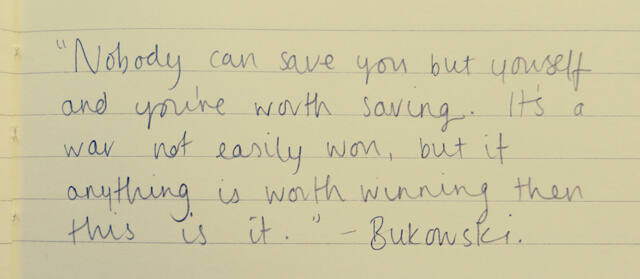 "Nobody can save you but youself
and you're worth saving. It's a
war not easily won, but if
anything is worth winning then
this is it." – Bukowski.